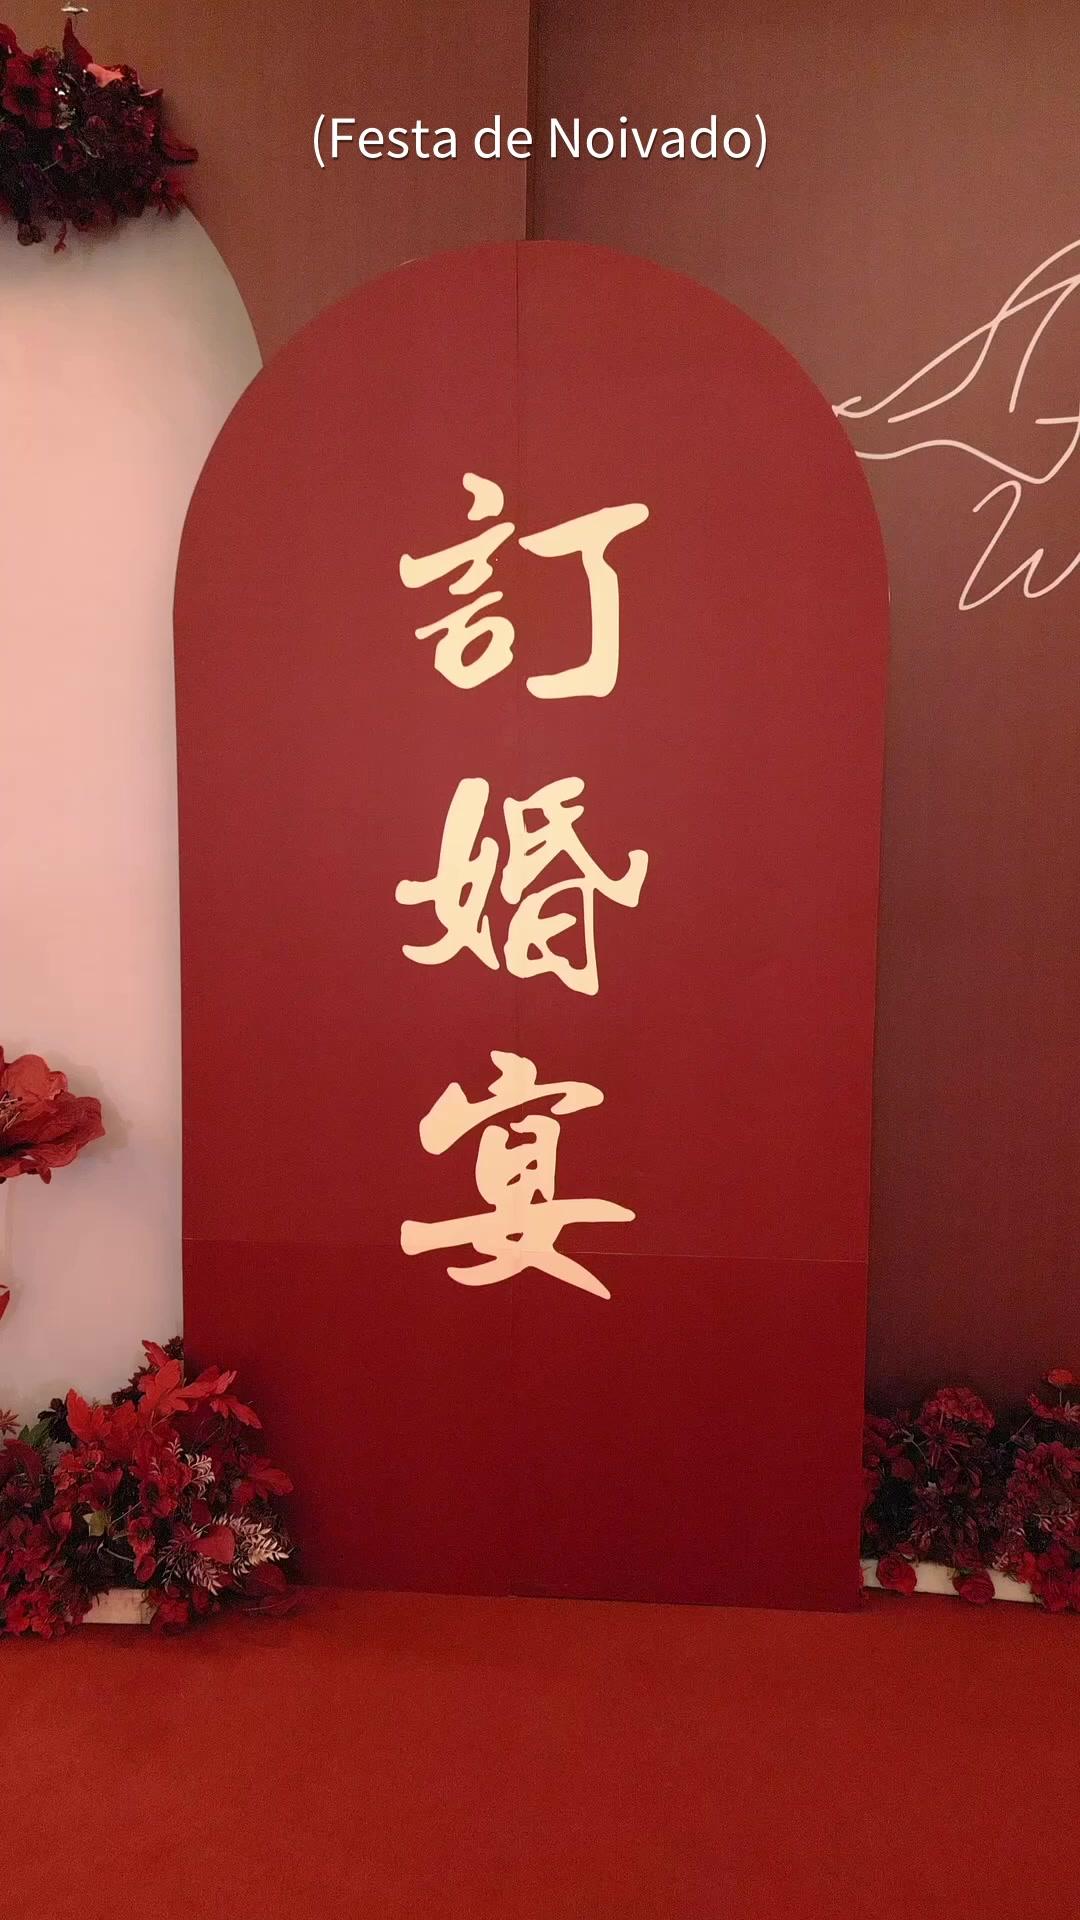 (Festa de Noivado)
訂
婚
宴